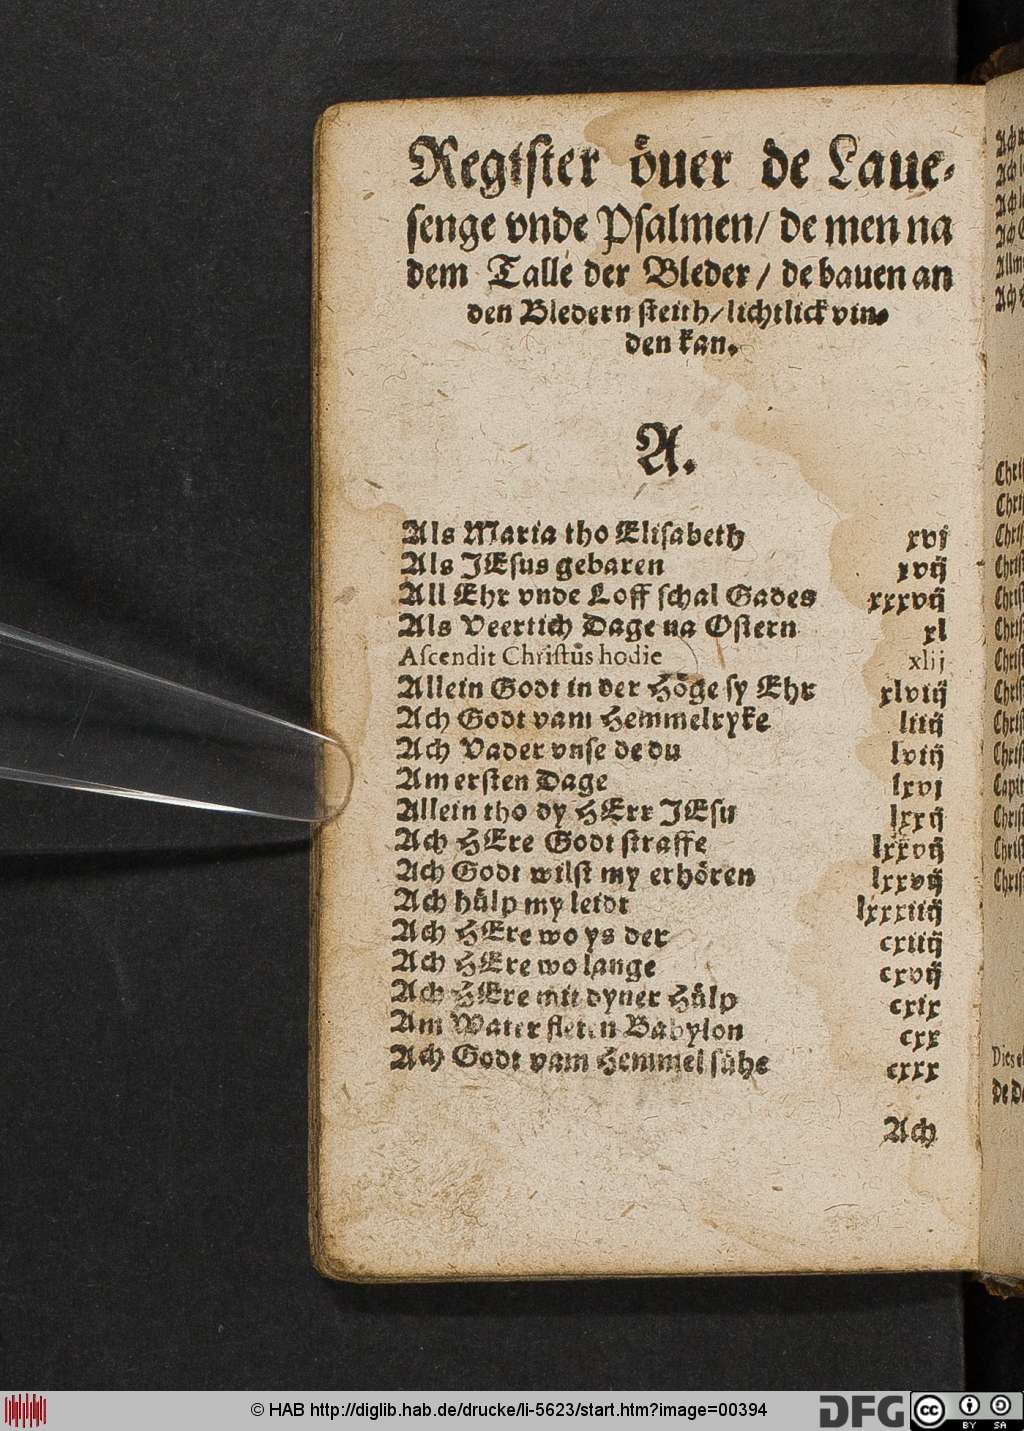 Register öuer de Laue-
ſenge vnde Pſalmen / de men na
dem Talle der Bleder / de bauen an
den Bledern ſteith / lichtlick vin-
den kan.
A.
Als Maria tho Eliſabeth xvj
Als JEſus gebaren xvij
All Ehr vnde Loff ſchal Gades xxxvij
Als Veertich Dage na Oſtern xl
Aſcendit Chriſtus hodie xlij
Allein Godt in der Höge ſy Ehr xlviij
Ach Godt vam Hemmelryke liiij
Ach Vader vnſe de du lviij
Am erſten Dage lxvj
Allein tho dy HErr JEſu lxxij
Ach HEre Godt ſtraffe lxxvij
Ach Godt wilſt my erhören lxxvij
Ach hülp my leidt lxxxiiij
Ach HEre wo ys der cxiiij
Ach HEre wo lange cxvij
Ach HEre mit dyner Hülp cxix
Am Water fleten Babylon cxx
Ach Godt vam Hemmel ſühe cxxx
Ach
© HAB http://diglib.hab.de/drucke/li-5623/start.htm?image=00394
DFG
cc
BY SA